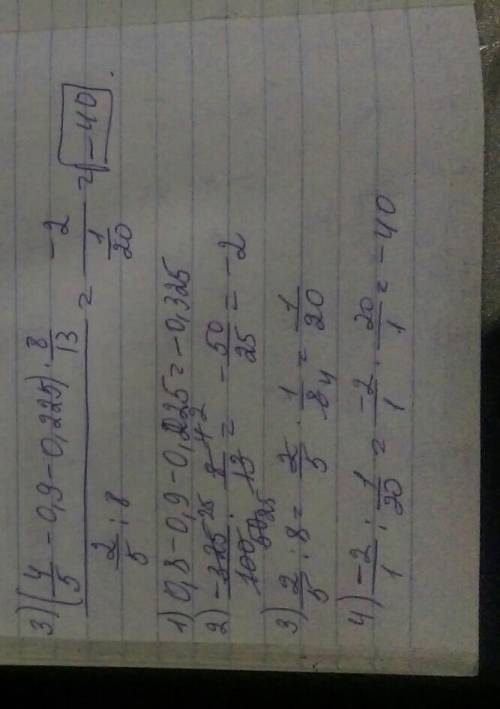 3) (4/5 - 0,9 - 0,225) · 8/13 / 2/5 : 8 = -2 / 1/20 = -40.
1) 0,8 - 0,9 - 0,225 = -0,325
2) -325 25 / 100 50 25 · 8 4 2 / 13 = -50/25 = -2
3) 2/5 : 8 = 2/5 · 1/8 4 = 1/20
4) -2/1 : 1/20 = -2/1 · 20/1 = -40